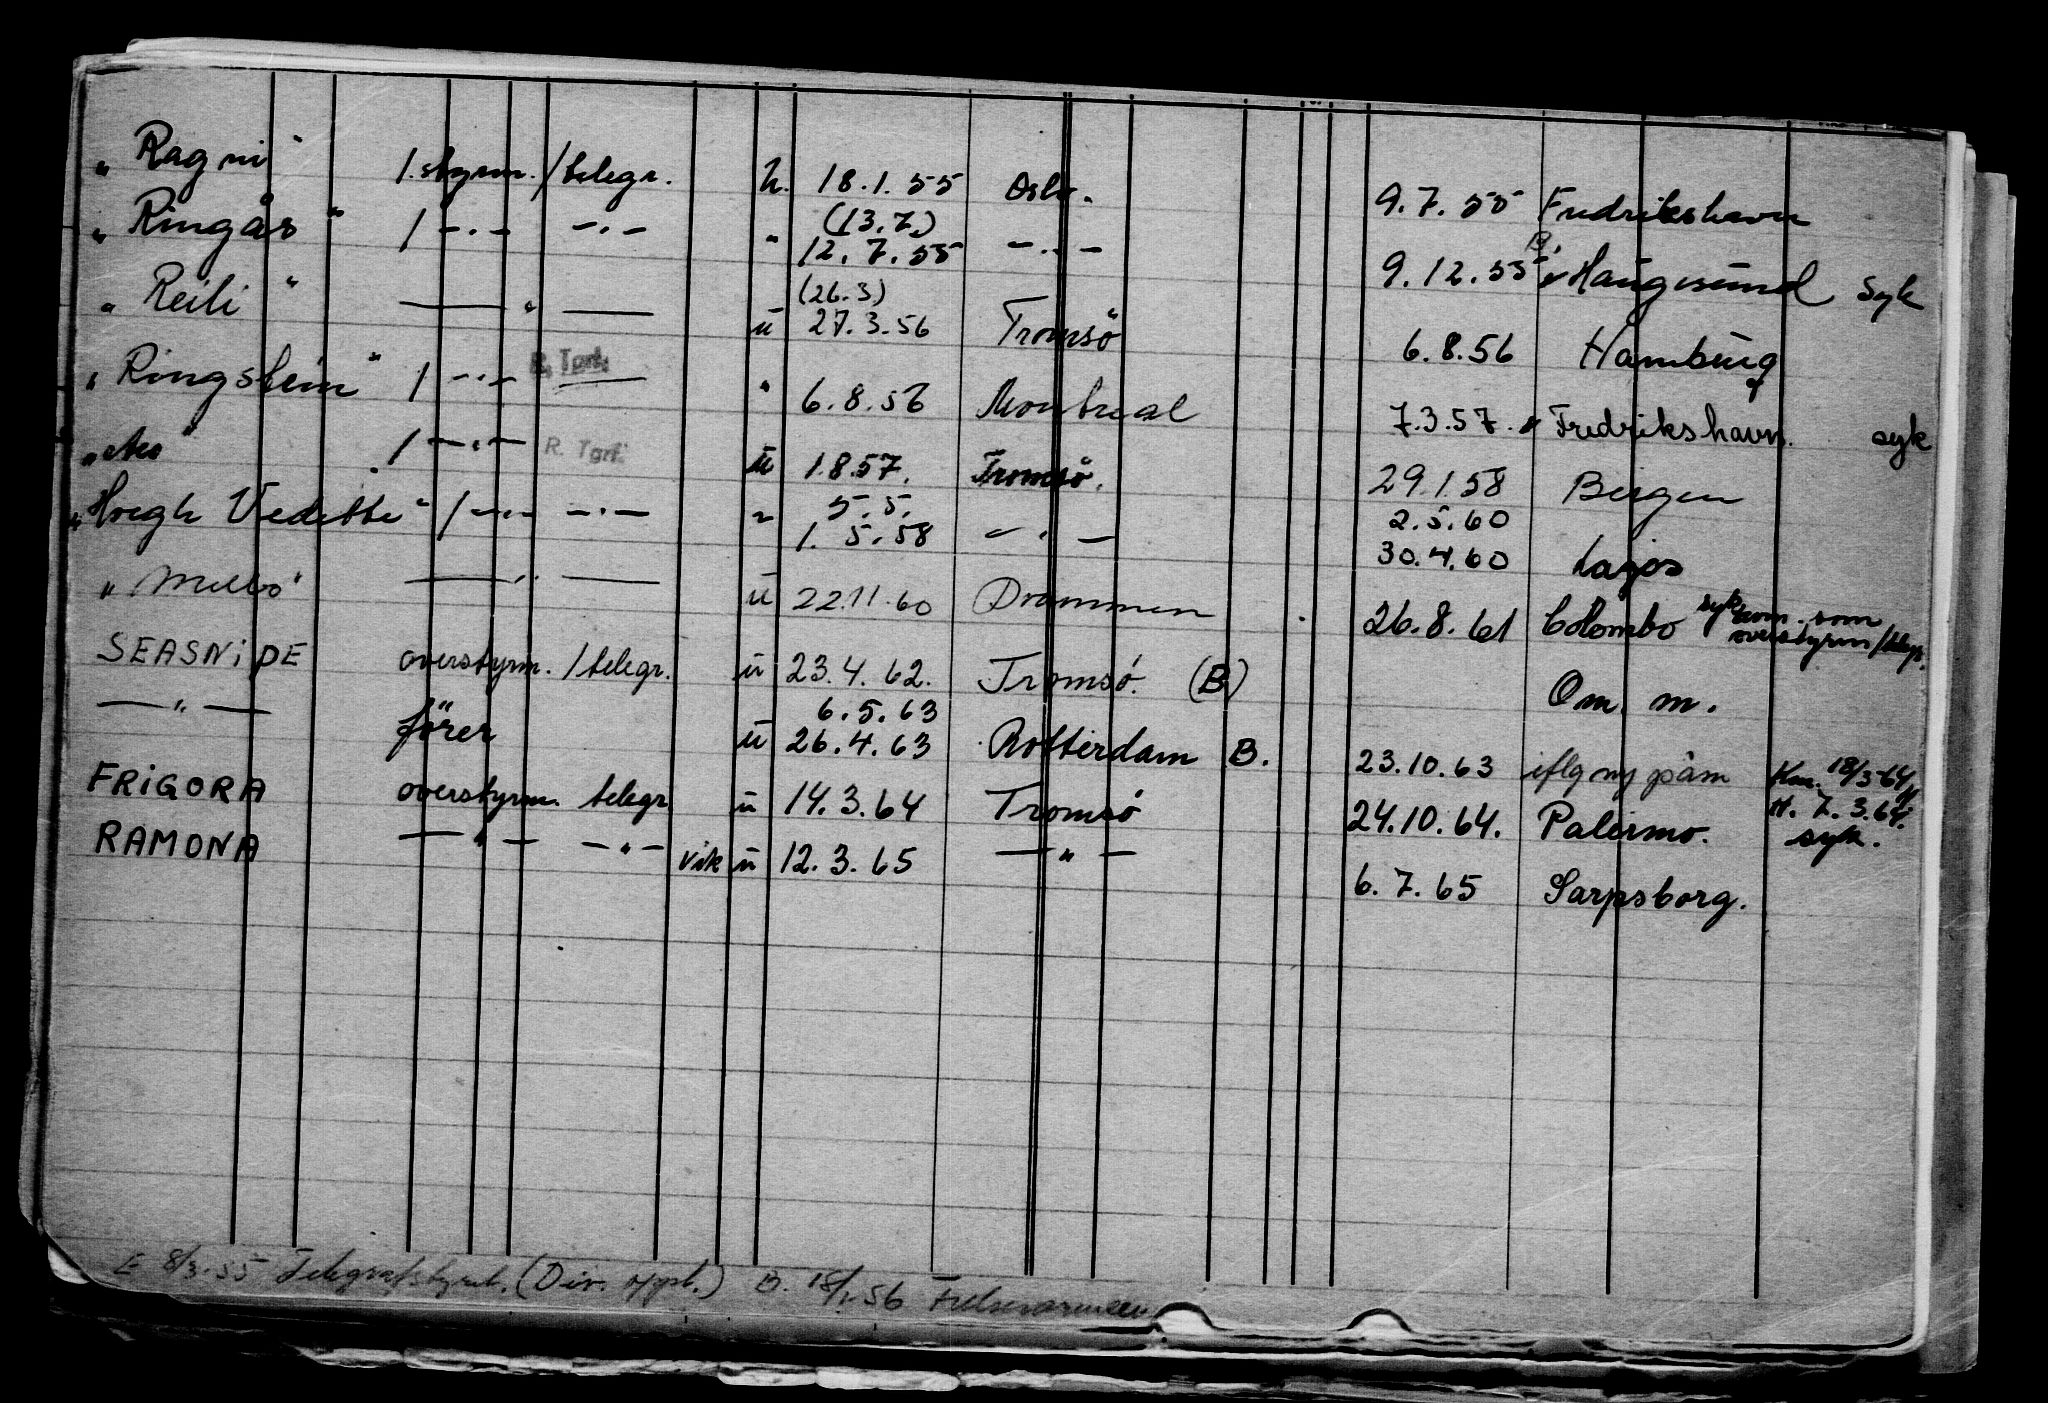 „Ragni" 1.styrm./telegr. h. 18.1.55 Oslo. 9.7.55 Fredrikshavn
„Ringås" 1 -·- -·- " (13.7.) 12.7.55 -·- 9.12.55 Haugesund syk
„Reili" —"— ü (26.3) 27.3.56 Tromsö 6.8.56 Hamburg
„Ringstein" 1 -·- R. Tgrf. — " 6.8.56 Montreal 7.3.57. Fredrikshavn. syk
1 -·- R. Tgrf. ü 1.8.57. Tromsö. 29.1.58 Bergen
„Höegh Vedette" 1 -·- -·- " 5.5. 1.5.58 -·- 2.5.60 30.4.60 Lagos
—"— ü 22.11.60 Drammen 26.8.61 Colombo syk, som overstyrm/telegr.
SEASNiPE overstyrm./telegr. ü 23.4.62. Tromsö. (B) Om. m.
—"— förer ü 6.5.63 26.4.63 Rotterdam B. 23.10.63 iflg ny påm 18/3-64
FRiGORA overstyrm. telegr. ü 14.3.64 Tromsö 24.10.64. Palermo. H. 7.3.64. syk.
RAMONA —"— -"- vik ü 12.3.65 —"— 6.7.65 Sarpsborg.
E 8/3.55 Telegrafstyret. (Div. oppt.) B. 18/1.56